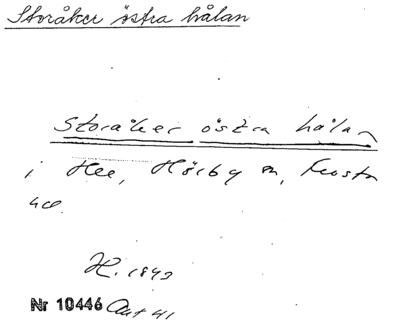 Storåker östra hålan
Storåker östra hålan
i Hee, Hörby sn, Frosta
hd.
H. 1843
Nr 10446